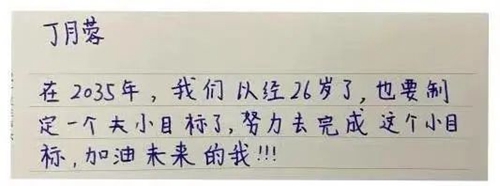 丁月蓉
在2035年，我们以经26岁了，也要制
定一个大小目标了，努力去完成这个小目
标，加油未来的我!!!